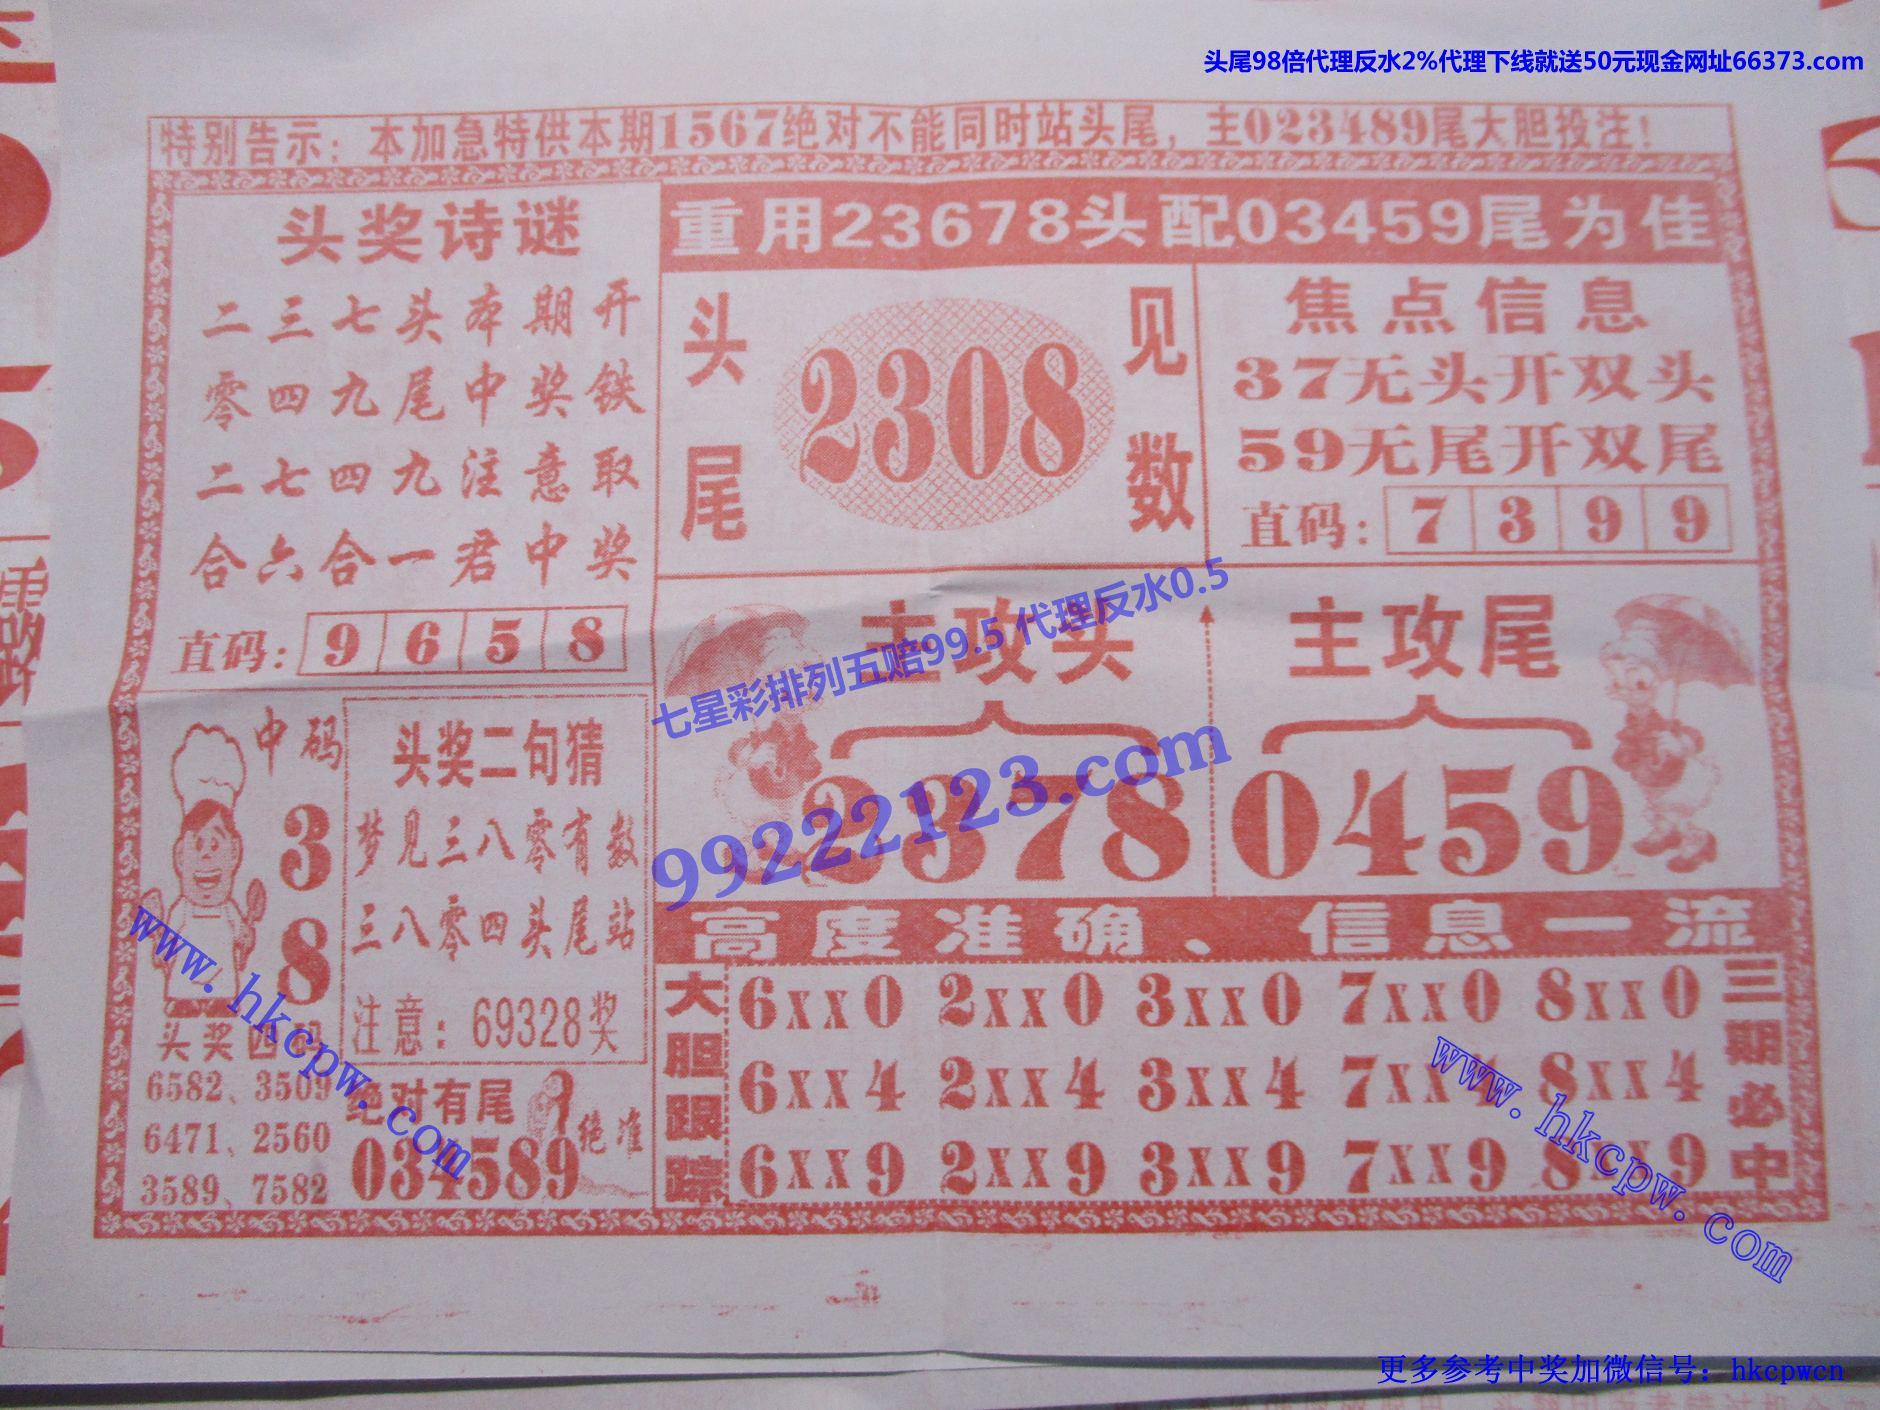 头尾98倍代理反水2%代理下线就送50元现金网址66373.com
特别告示：本加急特供本期1567绝对不能同时站头尾，主023489尾大胆投注！
头奖诗谜
二三七头本期开
零四九尾中奖铁
二七四九注意取
合六合一君中奖
直码：9658
重用23678头配03459尾为佳
头尾
2308
见数
焦点信息
37无头开双头
59无尾开双尾
直码：7399
七星彩排列五赔99.5代理反水0.5
99222123.com
主攻头
2378
主攻尾
0459
中码
3
8
头奖四码
6582、3509
6471、2560
3589、7582
头奖二句猜
梦见三八零有数
三八零四头尾站
注意：69328奖
绝对有尾
034589
绝准
www.hkcpw.com
高度准确、信息一流
大胆跟踪
6xx0 2xx0 3xx0 7xx0 8xx0
6xx4 2xx4 3xx4 7xx4 8xx4
6xx9 2xx9 3xx9 7xx9 8xx9
三期必中
www.hkcpw.com
更多参考中奖加微信号：hkcpwcn